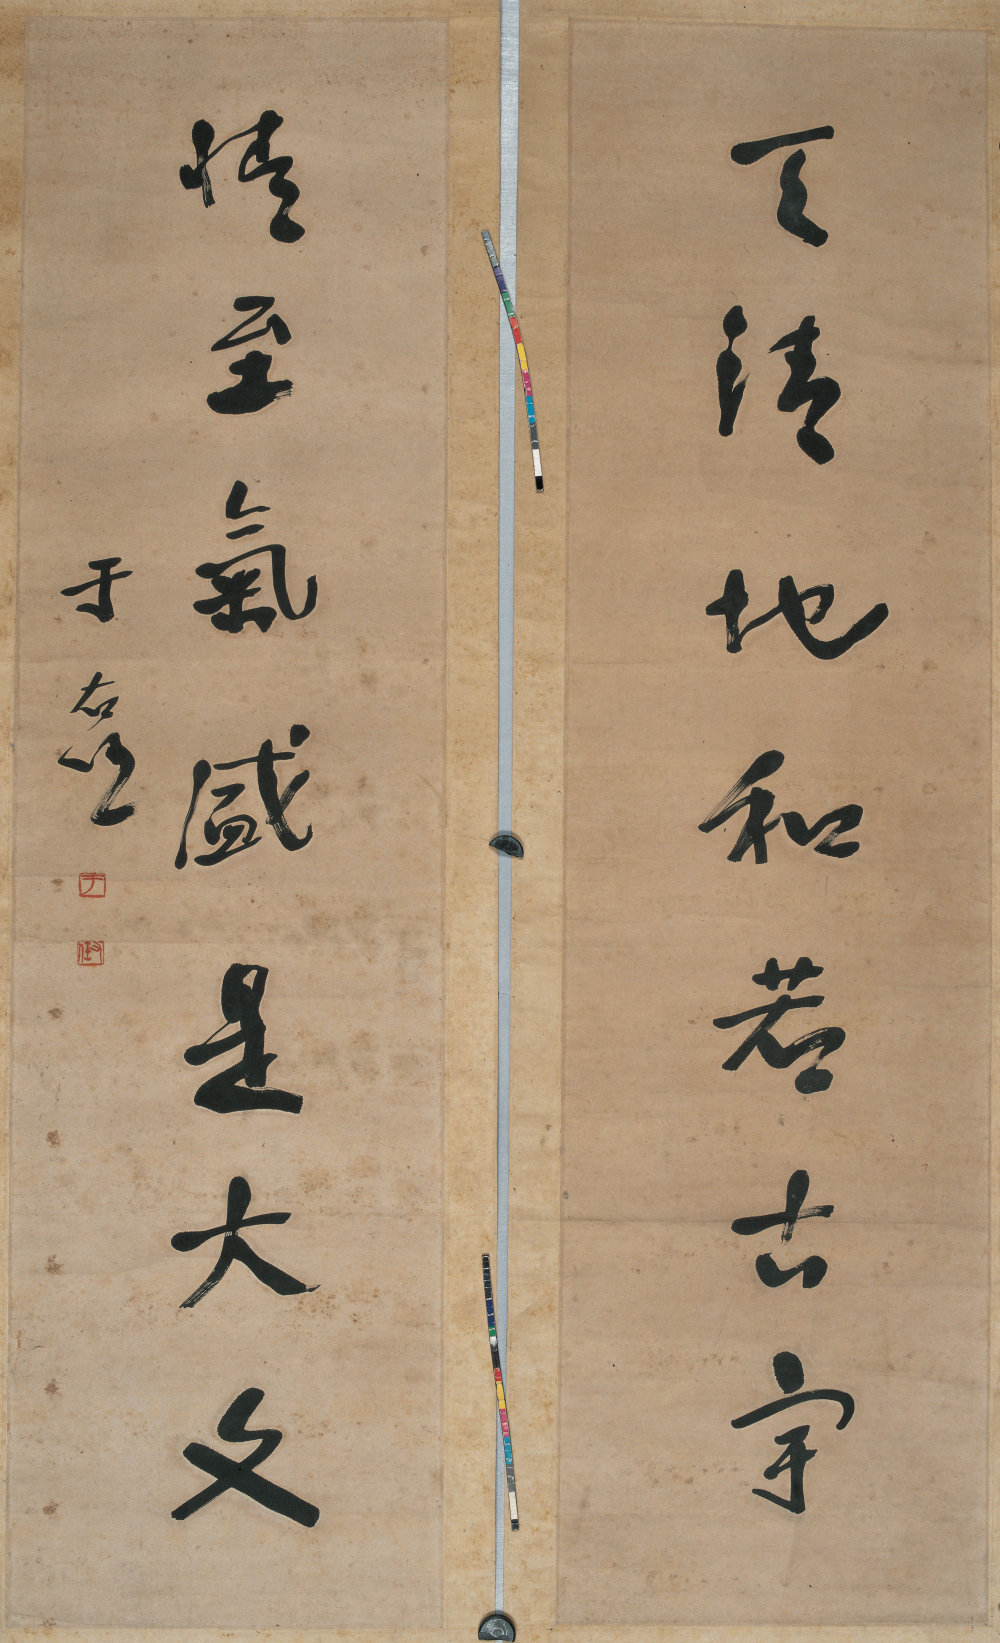 天清地和若古宇
情至氣盛是大文
于右任
于